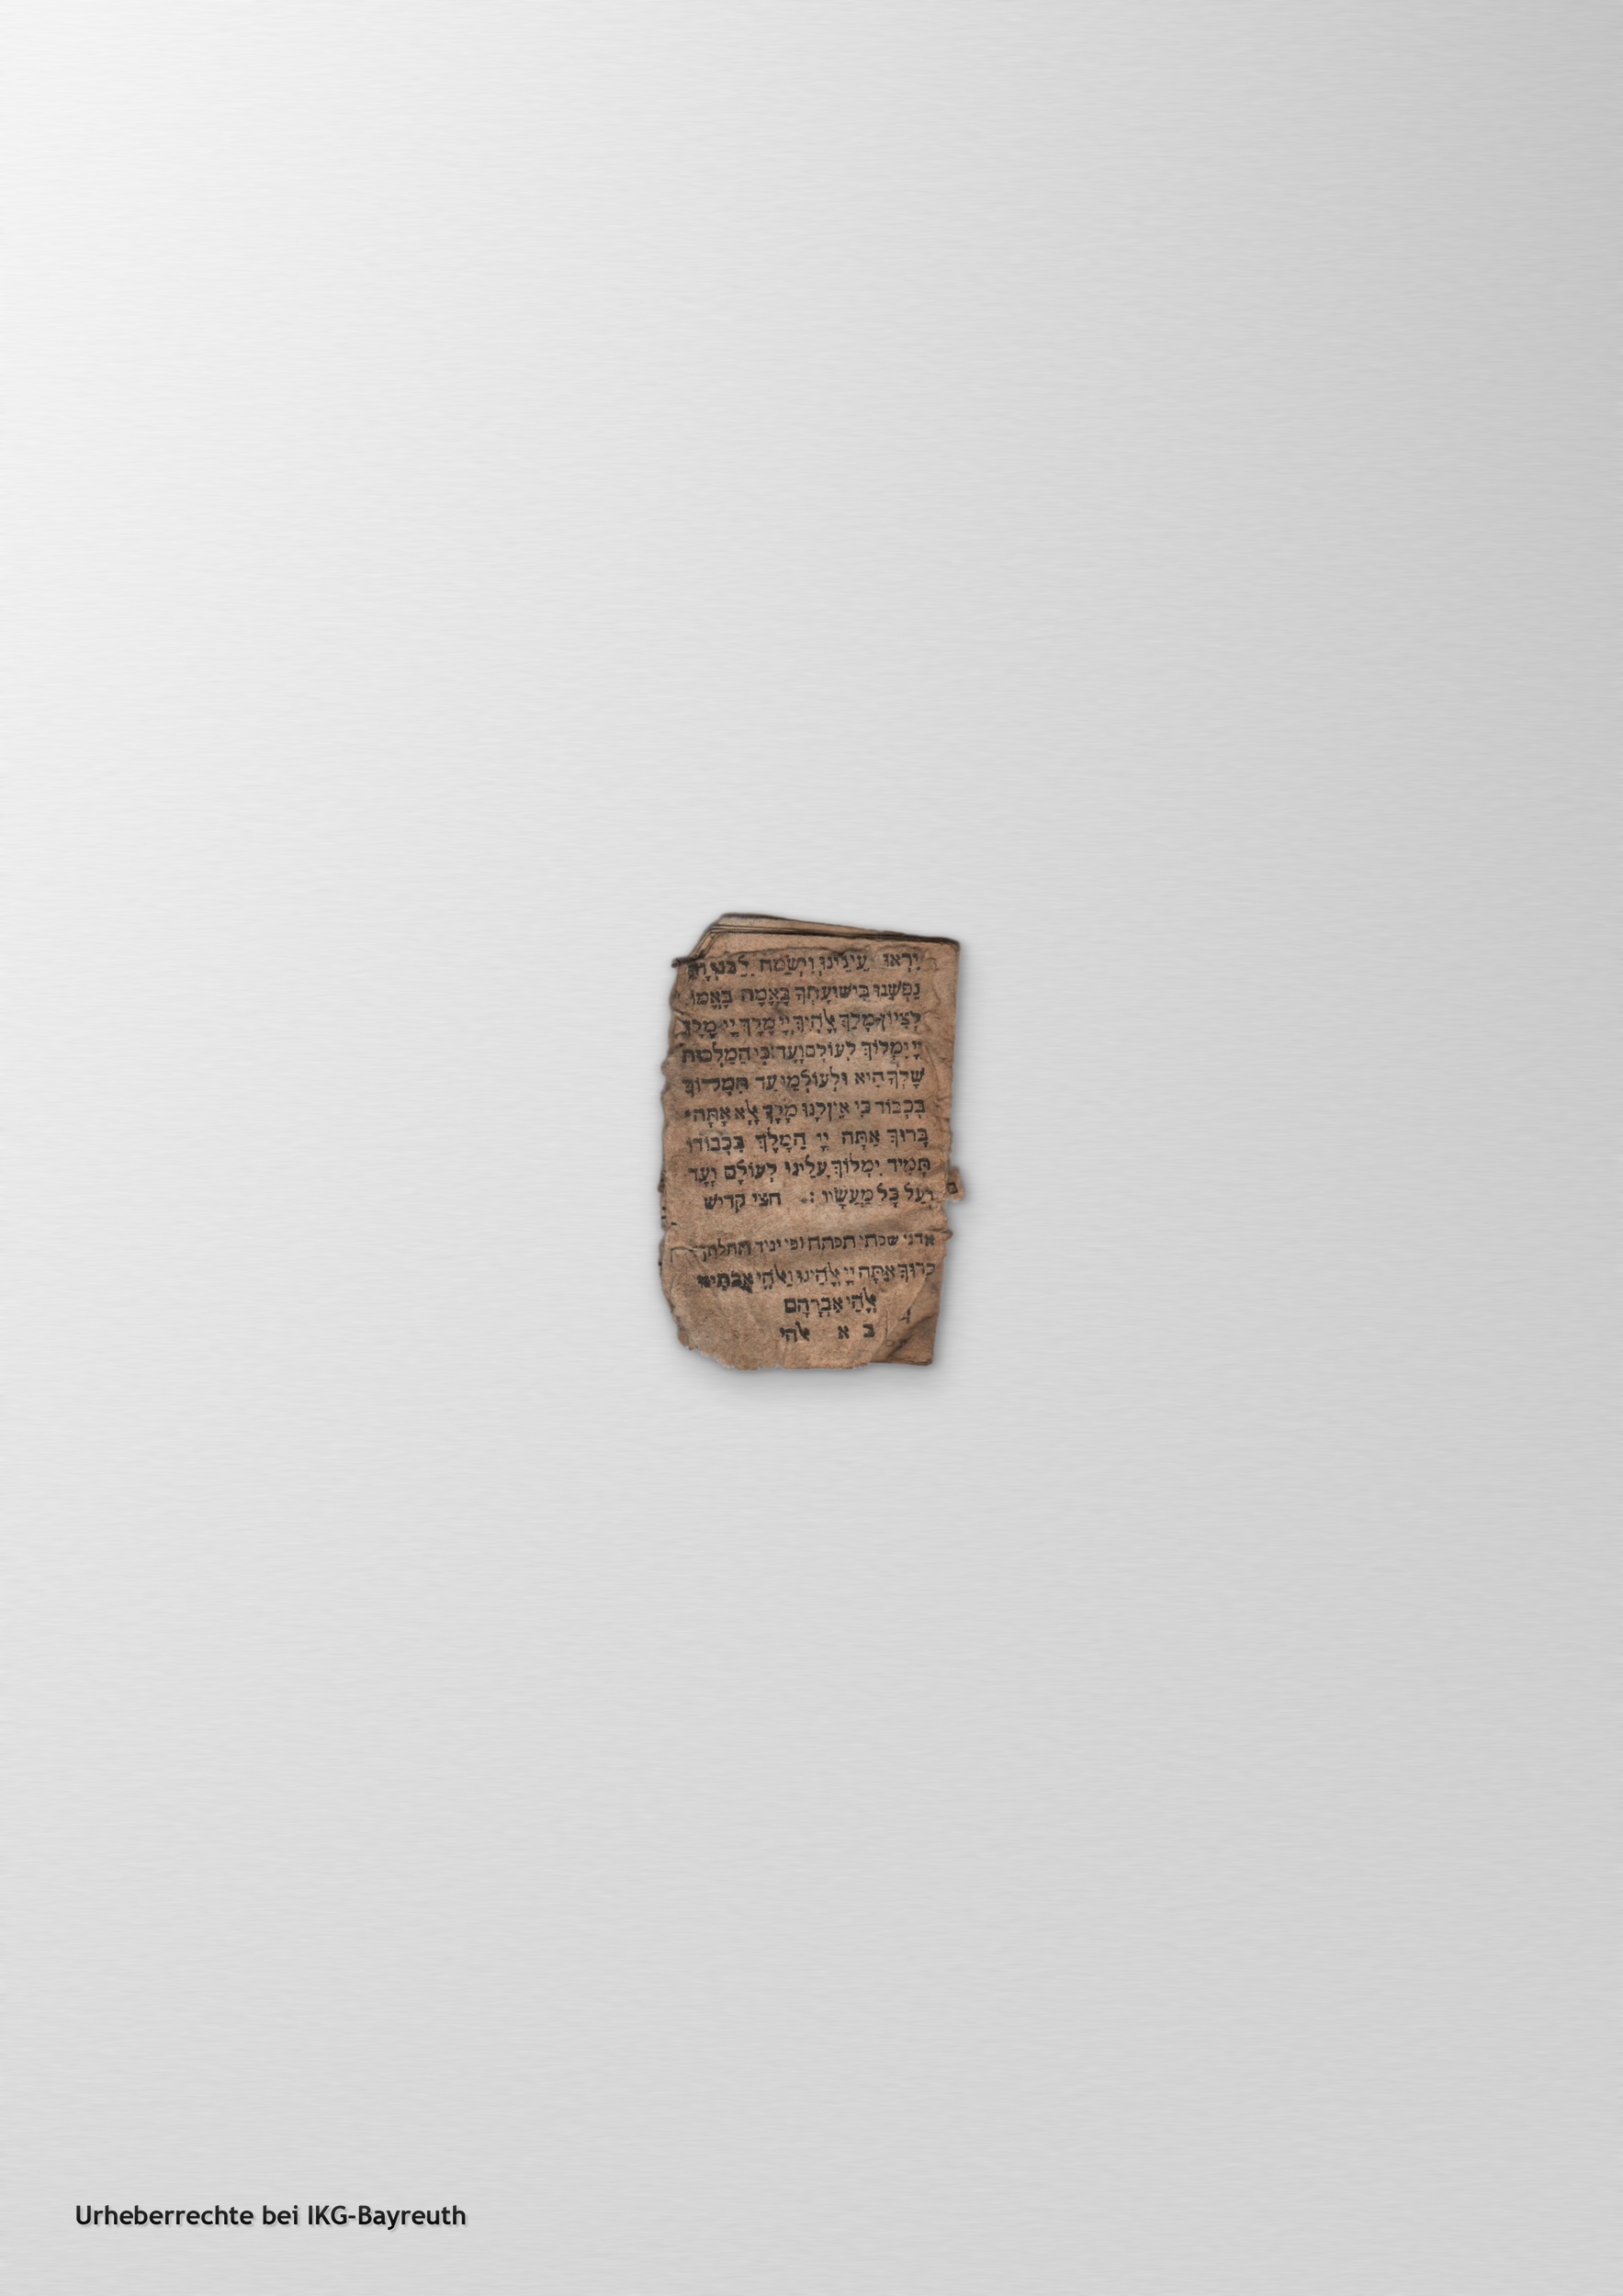 יִרְאוּ עֵינֵינוּ וְיִשְׂמַח לִבֵּנוּ
נַפְשֵׁנוּ בִּישׁוּעָתְךָ בֶּאֱמֶת בֶּאֱמוֹ
לְצִיּוֹן מָלַךְ אֱלֹהָיִךְ יְיָ מֶלֶךְ יְיָ מָלָךְ
יְיָ יִמְלוֹךְ לְעוֹלָם וָעֶד כִּי הַמַּלְכוּת
שֶׁלְּךָ הִיא וּלְעוֹלְמֵי עַד תִּמְלוֹךְ
בְּכָבוֹד כִּי אֵין לָנוּ מֶלֶךְ אֶלָּא אָתָּה
בָּרוּךְ אַתָּה יְיָ הַמֶּלֶךְ בִּכְבוֹדוֹ
תָּמִיד יִמְלוֹךְ עָלֵינוּ לְעוֹלָם וָעֶד
וְעַל כָּל מַעֲשָׂיו : חצי קדיש
אדני שפתי תפתח ופי יגיד תהלתך
בָּרוּךְ אַתָּה יְיָ אֱלֹהֵינוּ וֵאלֹהֵי אֲבֹתֵינוּ
אֱלֹהֵי אַבְרָהָם
ב א אלהי
Urheberrechte bei IKG-Bayreuth